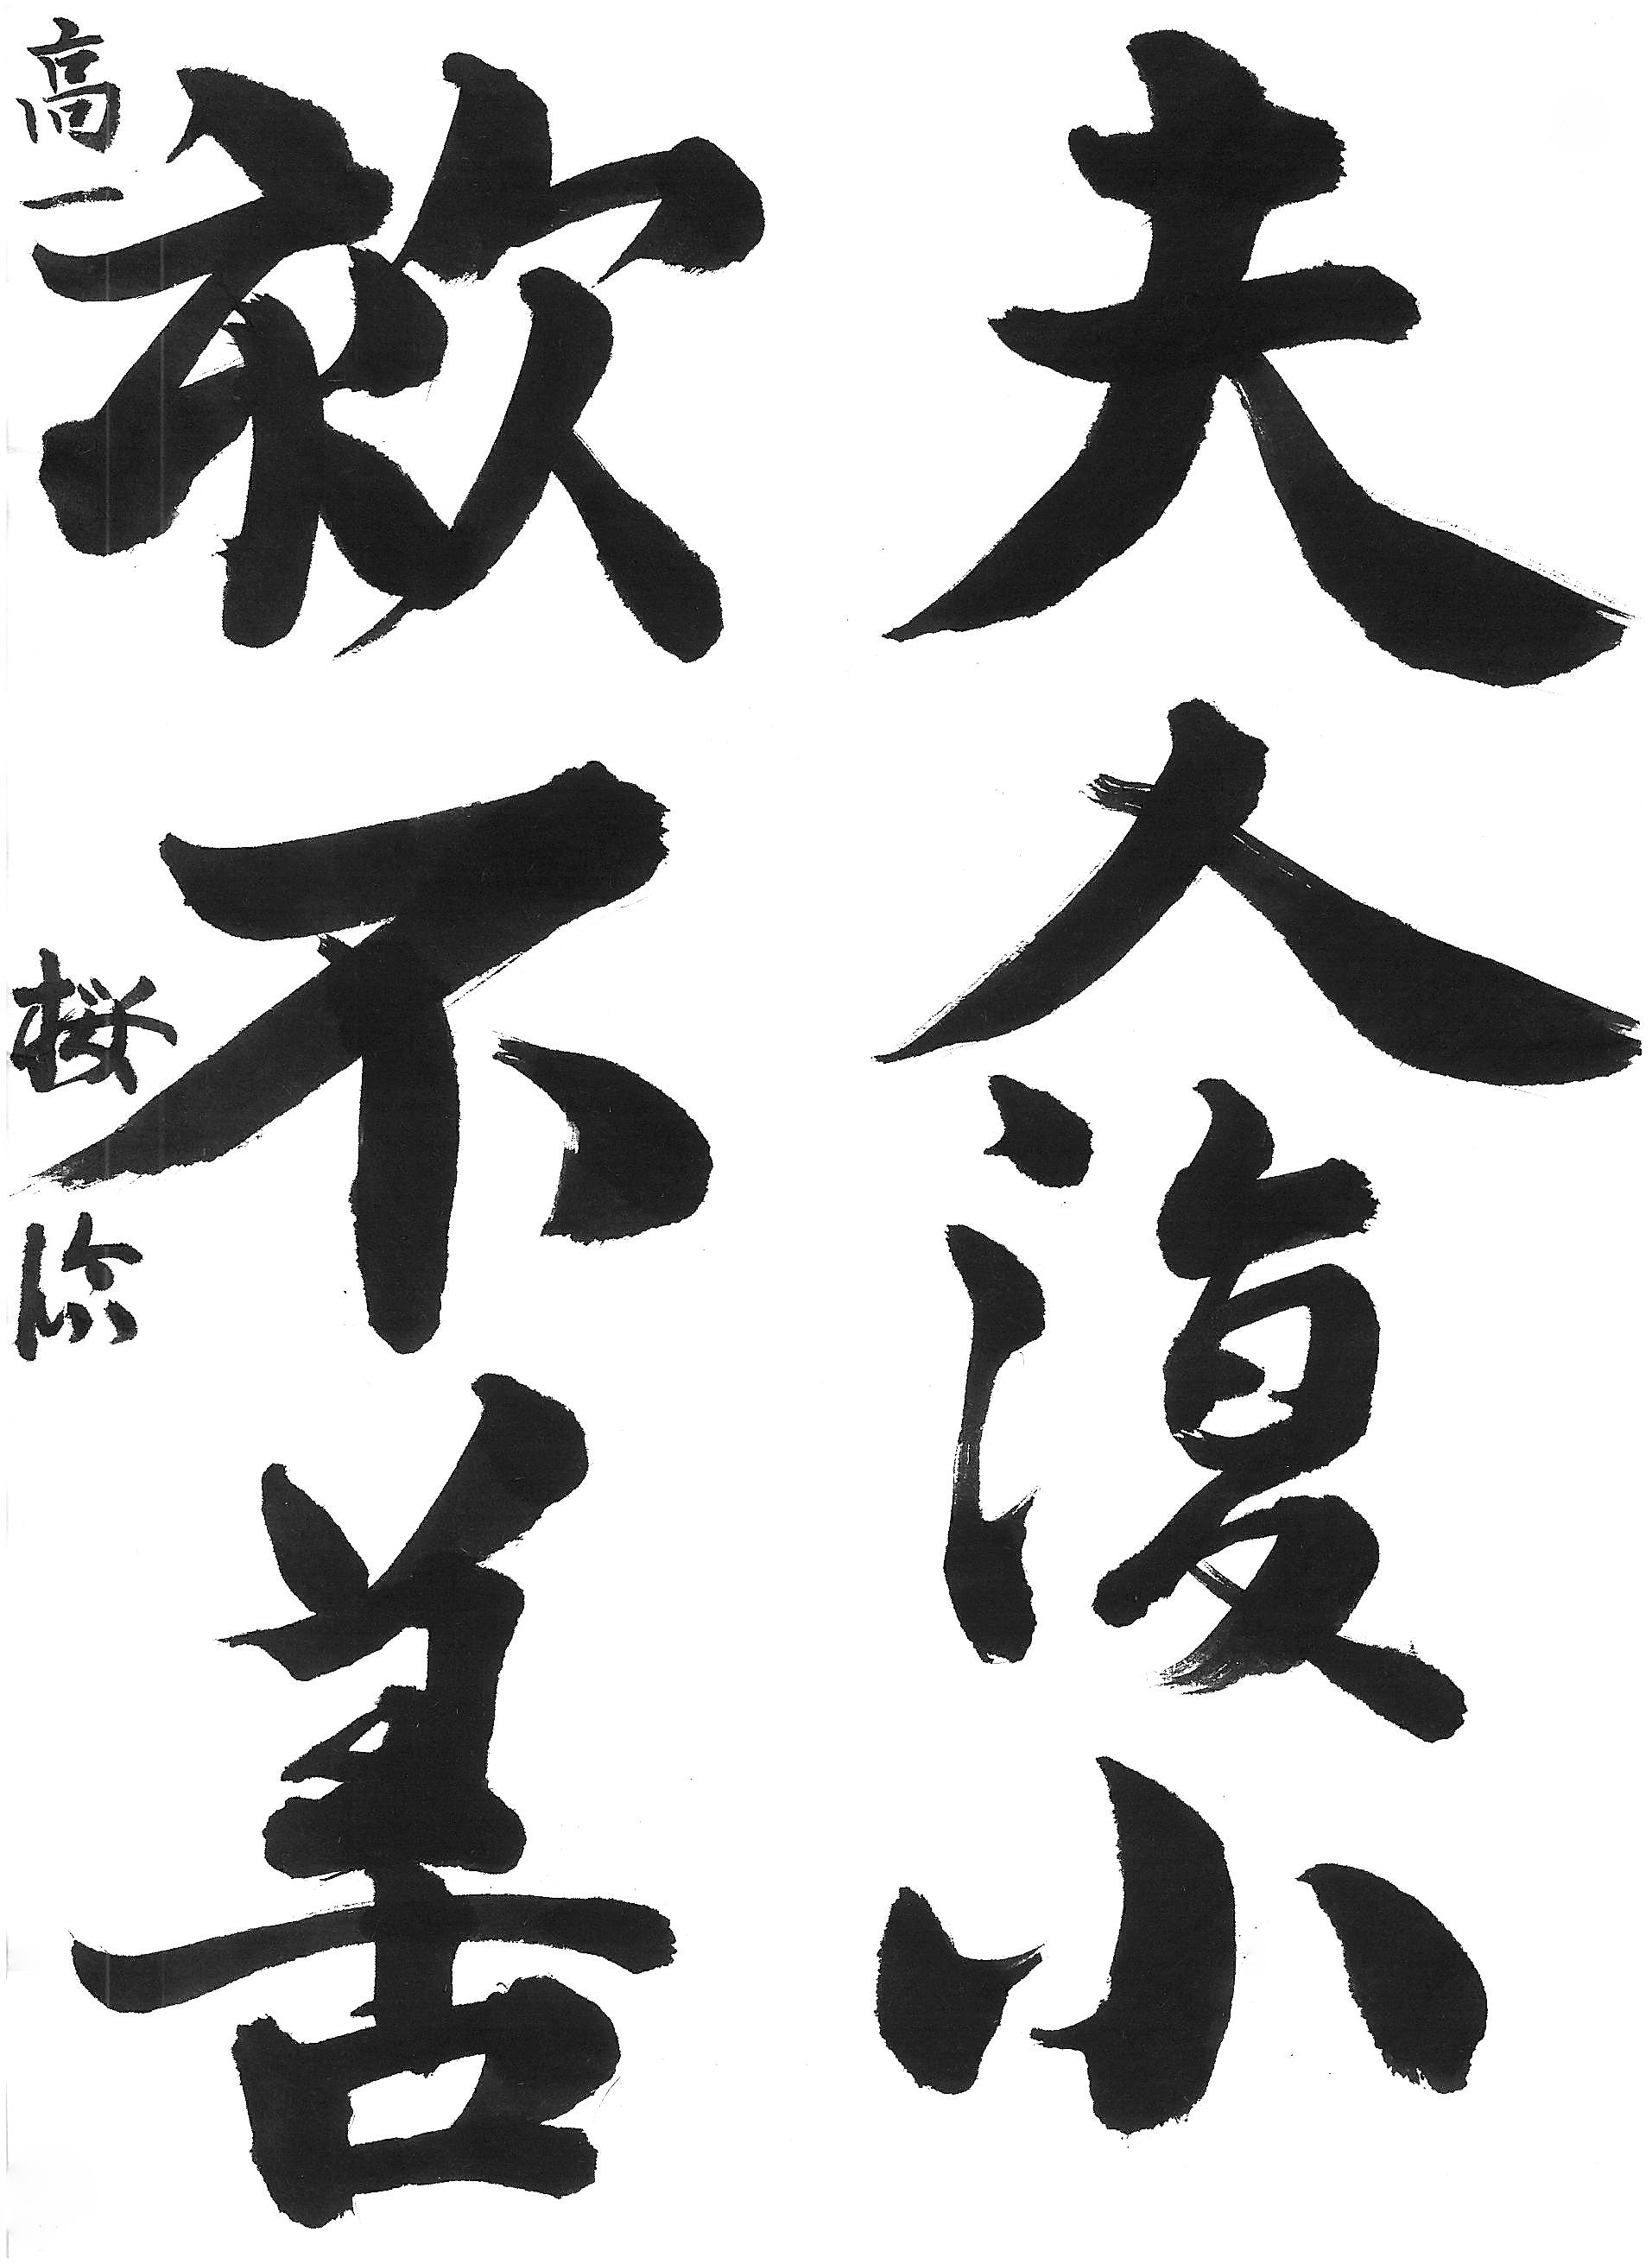 夫人復小
欬不善
高一 桜